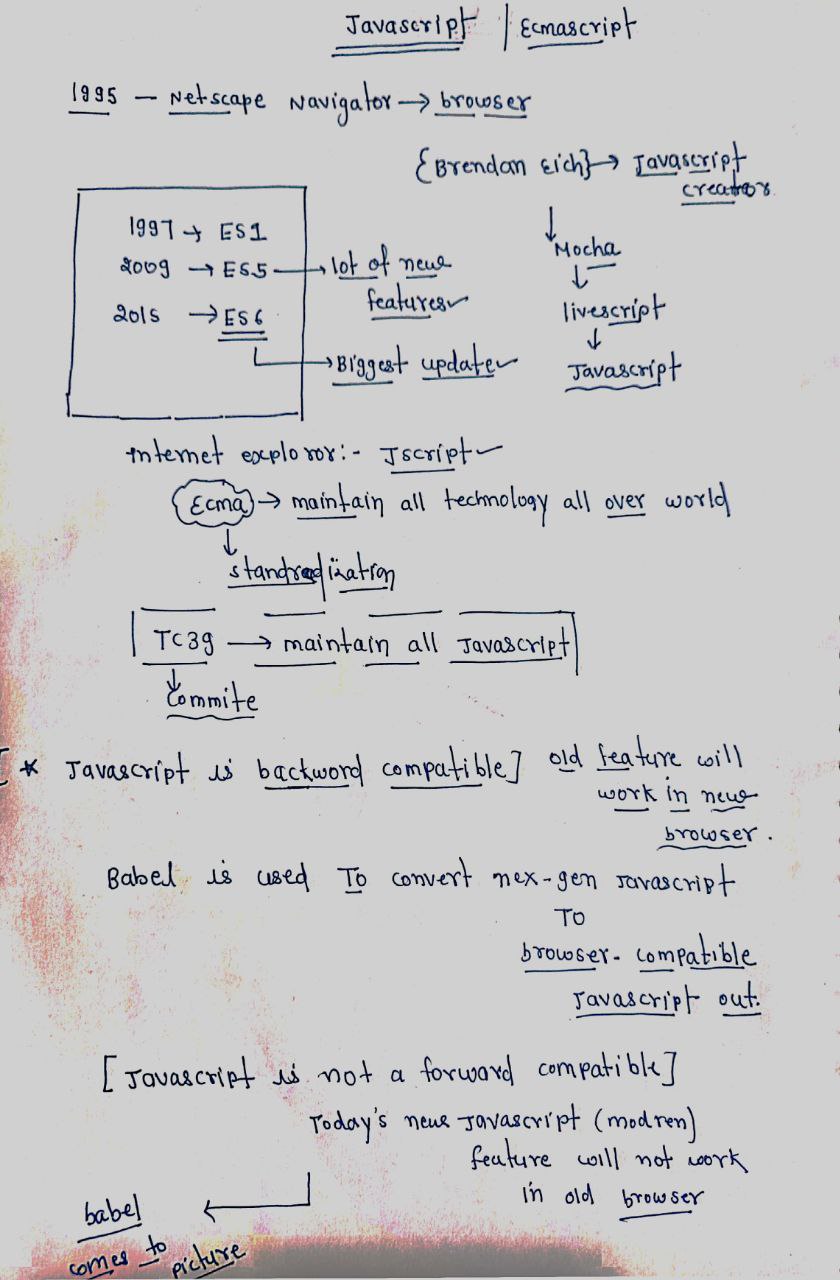 Javascript | Ecmascript
1995 – Netscape Navigator → browser
{Brendan Eich} → Javascript
creator
1997 → ES1
2009 → ES5 → lot of new
features
2015 → ES6
→ Biggest update
↓
Mocha
↓
livescript
↓
Javascript
internet exploror:- Jscript
Ecma → maintain all technology all over world
↓
standradization
TC39 → maintain all Javascript
↓
Commite
[ * Javascript is backword compatible] old feature will
work in new
browser.
Babel is used To convert nex-gen Javascript
TO
browser-compatible
Javascript out.
[Javascript is not a forward compatible]
Today's new Javascript (modren)
feature will not work
in old browser
babel ←
comes to picture